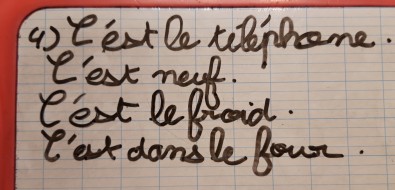 4) C'ést le téléphone.
C'ést neuf.
C'ést le froid.
C'est dans le four.